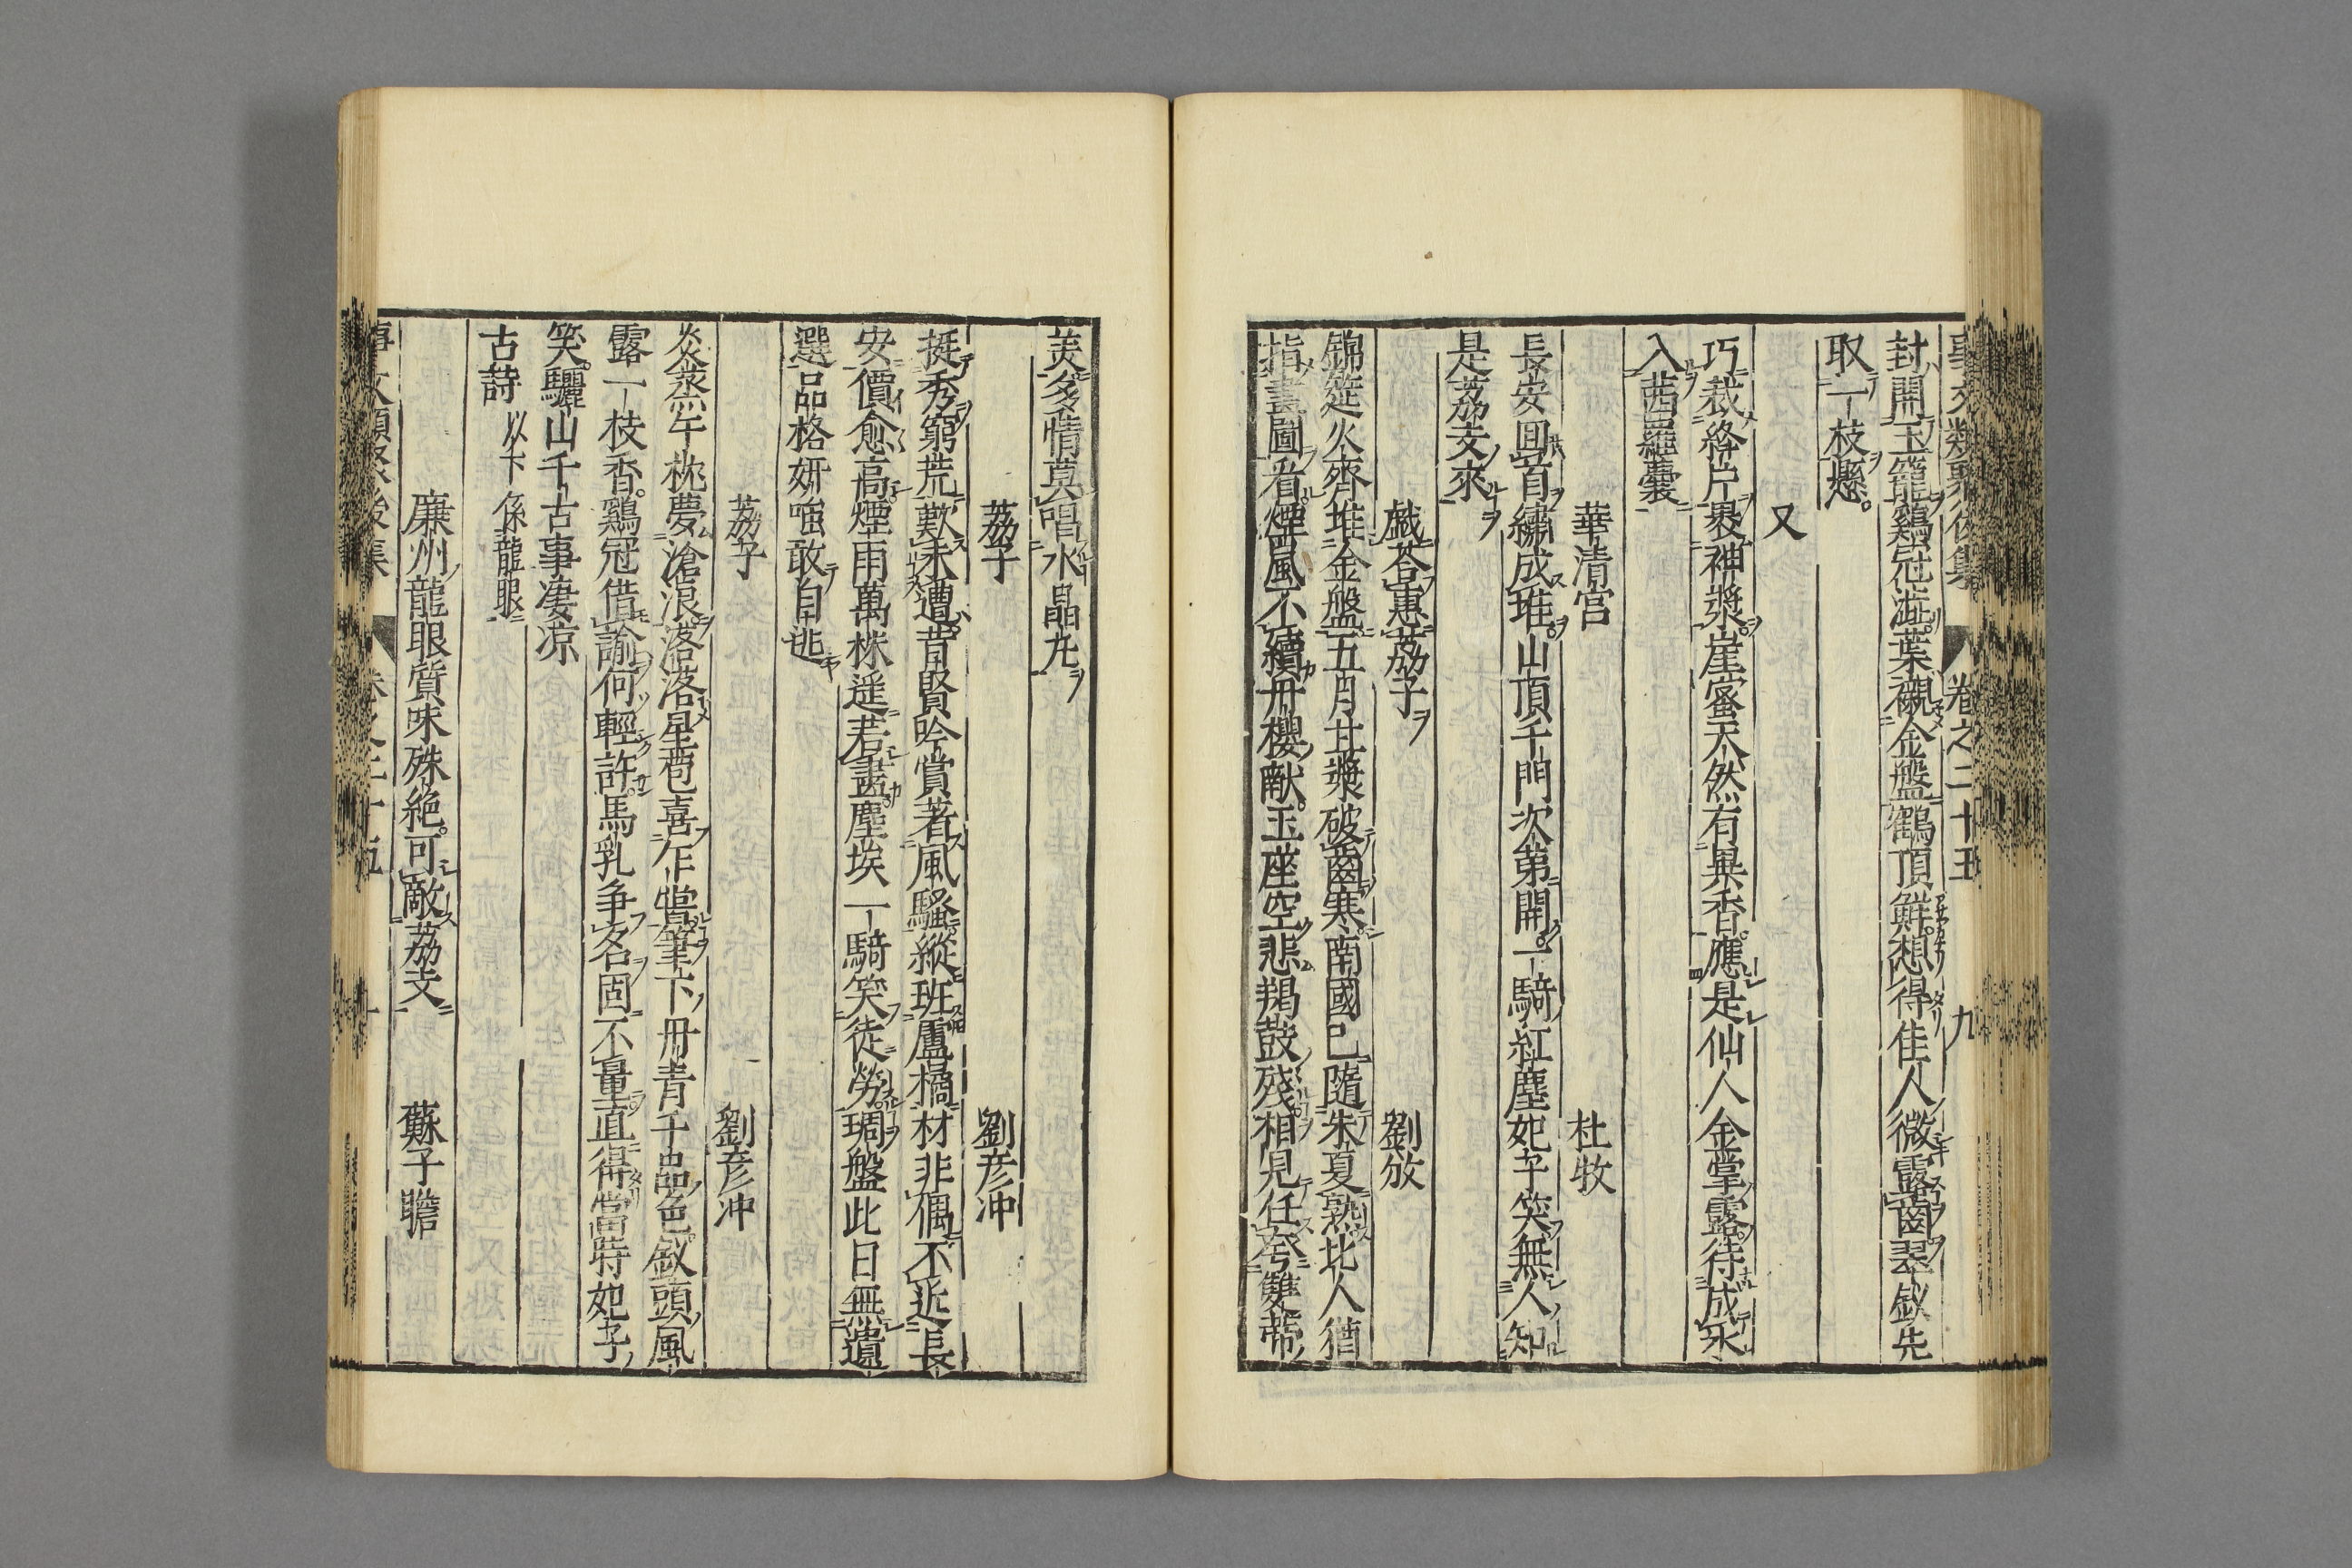 事文類聚後集 卷之二十五 九
封開玉籠鷄冠澁葉襯金盤鶴頂鮮想得佳人微露齒翠釵先
取一枝懸
又
巧裁絳片裹神漿崖蜜天然有異香應是仙人金掌露待成氷
入茜羅囊
華清宮 杜牧
長安回首繡成堆山頂千門次第開一騎紅塵妃子笑無人知
是荔支來
戯荅惠荔子 劉攽
錦筵火齊堆金盤五月甘漿破齒寒南國已隨朱夏熟北人猶
指畫圖看煙嵐不續丹櫻献玉座空悲羯鼓殘相見任夸雙蒂
美多情莫唱水晶丸
荔子 劉彦冲
挺秀窮荒歎未遭昔賢吟賞著風騷縱班盧橘材非偶不近長
安價愈高煙雨萬株遥若畫塵埃一騎笑徒勞琱盤此日無遺
選品格妍嗤敢自逃
荔子 劉彦冲
炎蒸午枕夢滄浪落落星苞喜乍嘗筆下丹青千品色釵頭風
露一枝香鷄冠借諭何輕許馬乳争名固不量直得當時妃子
笑驪山千古事凄凉
古詩 以下係龍眼
廉州龍眼質味殊絶可敵荔支 蘇子瞻
事文類聚後集 卷之二十五 十